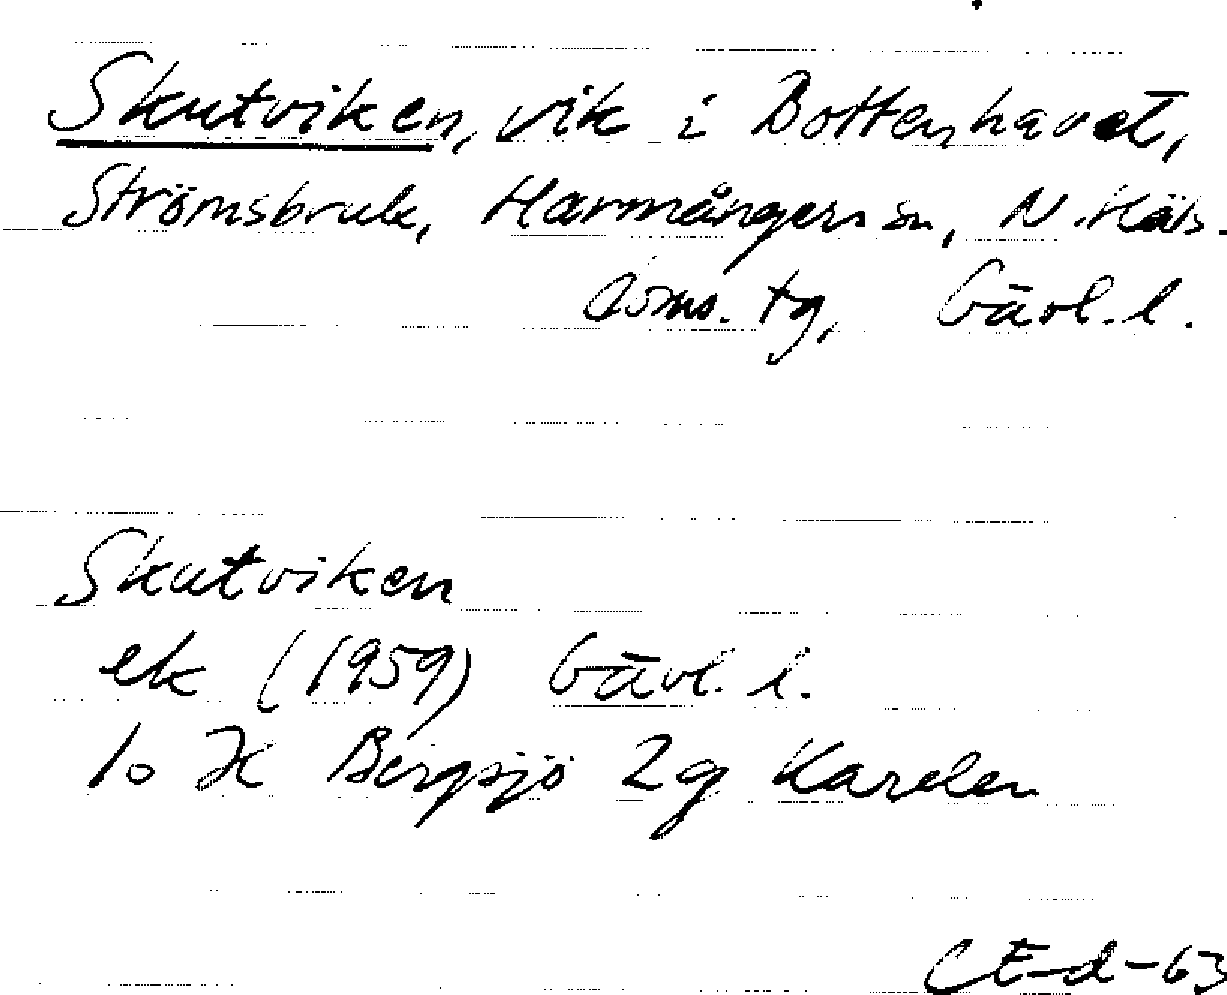 Skutviken, vik i Bottenhavet,
Strömsbruk, Harmångers sn, N. Häls.
doms. tg, Gävl. l.
Skutviken
ek (1959) Gävl. l.
10 H Bergsjö 2g Karelen
CEd-63